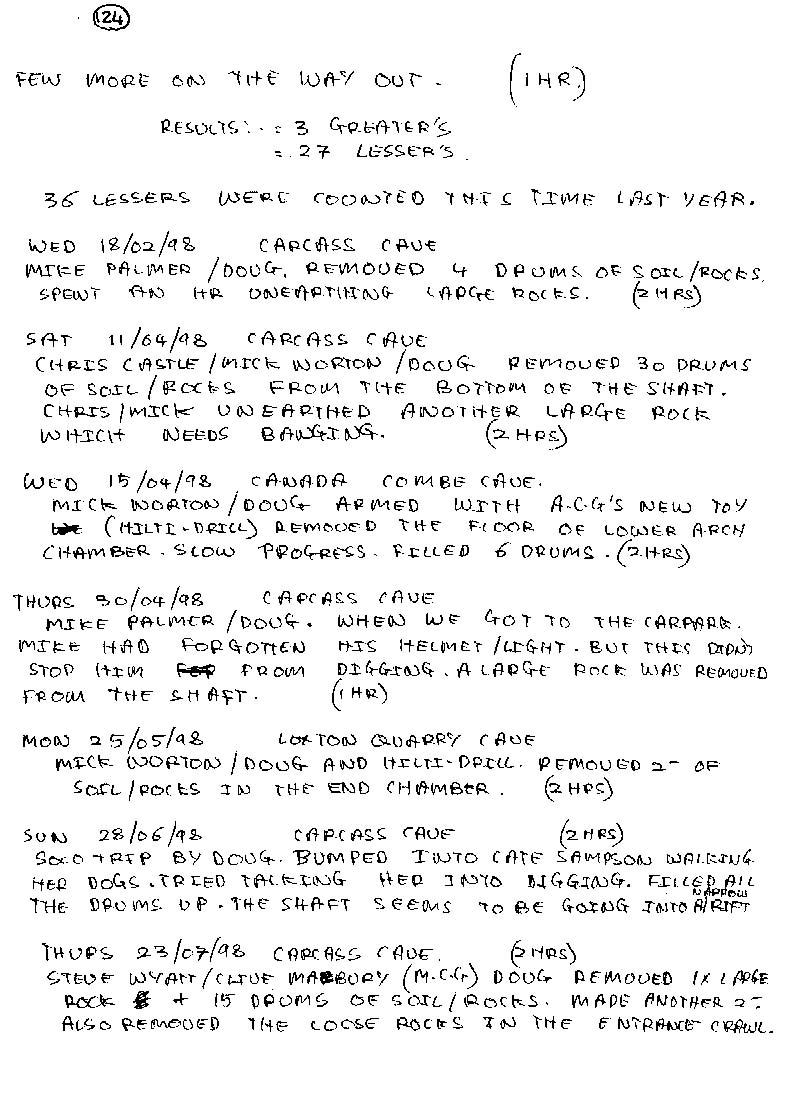 124
FEW MORE ON THE WAY OUT. (1 HR)
RESULTS:- = 3 GREATER'S
= 27 LESSER'S.
36 LESSERS WERE COUNTED THIS TIME LAST YEAR.
WED 18/02/98 CARCASS CAVE
MIKE PALMER / DOUG. REMOVED 4 DRUMS OF SOIL/ROCKS.
SPENT AN HR UNEARTHING LARGE ROCKS. (2 HRS)
SAT 11/04/98 CARCASS CAVE
CHRIS CASTLE / MICK NORTON / DOUG REMOVED 30 DRUMS
OF SOIL / ROCKS FROM THE BOTTOM OF THE SHAFT.
CHRIS / MICK UNEARTHED ANOTHER LARGE ROCK
WHICH NEEDS BANGING. (2 HRS)
WED 15/04/98 CANADA COMBE CAVE.
MICK NORTON / DOUG ARMED WITH A.C.G'S NEW TOY
(HILTI-DRILL) REMOVED THE FLOOR OF LOWER ARCH
CHAMBER. SLOW PROGRESS. FILLED 6 DRUMS. (2 HRS)
THURS 30/04/98 CARCASS CAVE
MIKE PALMER / DOUG. WHEN WE GOT TO THE CARPARK.
MIKE HAD FORGOTTEN HIS HELMET / LIGHT. BUT THIS DIDN'T
STOP HIM FROM DIGGING. A LARGE ROCK WAS REMOVED
FROM THE SHAFT. (1 HR)
MON 25/05/98 LOXTON QUARRY CAVE
MICK NORTON / DOUG AND HILTI-DRILL. REMOVED 2- OF
SOIL / ROCKS IN THE END CHAMBER. (2 HRS)
SUN 28/06/98 CARCASS CAVE (2 HRS)
SOLO TRIP BY DOUG. BUMPED INTO CATE SAMPSON WALKING
HER DOGS. TRIED TALKING HER INTO DIGGING. FILLED ALL
THE DRUMS UP. THE SHAFT SEEMS TO BE GOING INTO A NARROW RIFT
THURS 23/07/98 CARCASS CAVE. (2 HRS)
STEVE WYATT / CLIVE (M.C.G) DOUG REMOVED 1X LARGE
ROCK + 15 DRUMS OF SOIL / ROCKS. MADE ANOTHER 2-
ALSO REMOVED THE LOOSE ROCKS IN THE ENTRANCE CRAWL.